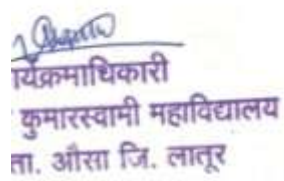 र्यक्रमाधिकारी
कुमारस्वामी महाविद्यालय
ता. औसा जि. लातूर